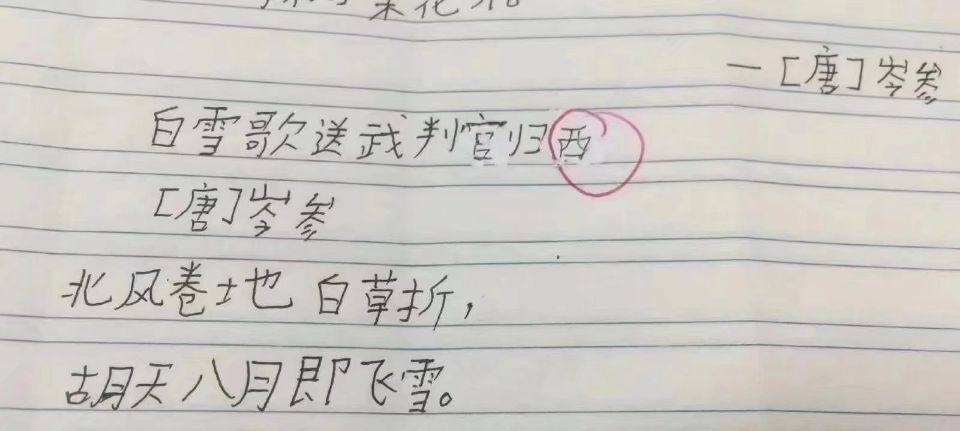 梨花开。
—[唐]岑参
白雪歌送武判官归西
[唐]岑参
北风卷地白草折，
胡天八月即飞雪。